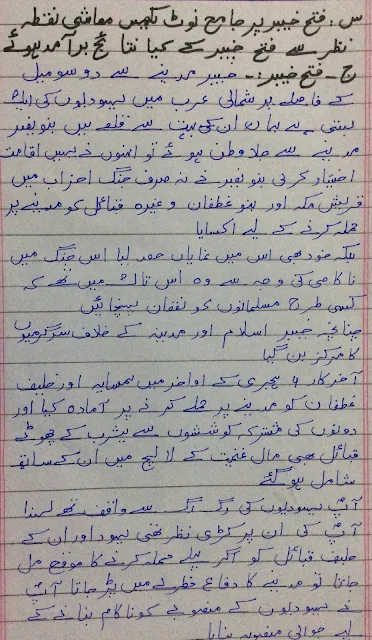 س: فتح خیبر پر جامع نوٹ لکھیں معاشی نقطہ
نظر سے فتح خیبر کے کیا نتائج برآمد ہوئے
ج - فتح خیبر:- خیبر مدینے سے دو سو میل
کے فاصلے پر شمالی عرب میں یہودیوں کی ایک
بستی ہے یہاں ان کی بہت سے قلعے ہیں بنو نضیر
مدینے سے جلا وطن ہوئے تو انہوں نے یہیں اقامت
اختیار کر لی بنو نضیر نے نہ صرف جنگ احزاب میں
قریش مکہ اور بنو غطفان وغیرہ قبائل کو مدینے پر
حملہ کرنے کے لیے اکسایا
بلکہ خود بھی اس میں نمایاں حصہ لیا اس جنگ میں
ناکامی کی وجہ سے وہ اس تاک میں تھے کہ
کسی طرح مسلمانوں کو نقصان پہنچائیں
چنانچہ خیبر اسلام اور مدینہ کے خلاف سرگرمیوں
کا مرکز بن گیا
آخر کار 6 ہجری کے اواخر میں ہمسایہ اور حلیف
غطفان کو مدینے پر حملے کرنے پر آمادہ کیا اور
دونوں کی مشترکہ کوششوں سے یثرب کے چھوٹے
قبائل بھی مال غنیمت کے لالچ میں ان کے ساتھ
شامل ہو گئے
آپؐ یہودیوں کی رگ رگ سے واقف تھے لہذا
آپؐ کی ان پر کڑی نظر تھی یہود اور ان کے
حلیف قبائل کو اگر پہلے حملہ کرنے کا موقع مل
جاتا تو مدینے کا دفاع خطرے میں پڑ جاتا آپؐ
نے یہودیوں کے منصوبے کو ناکام بنانے کے
لیے جوابی منصوبہ بنایا